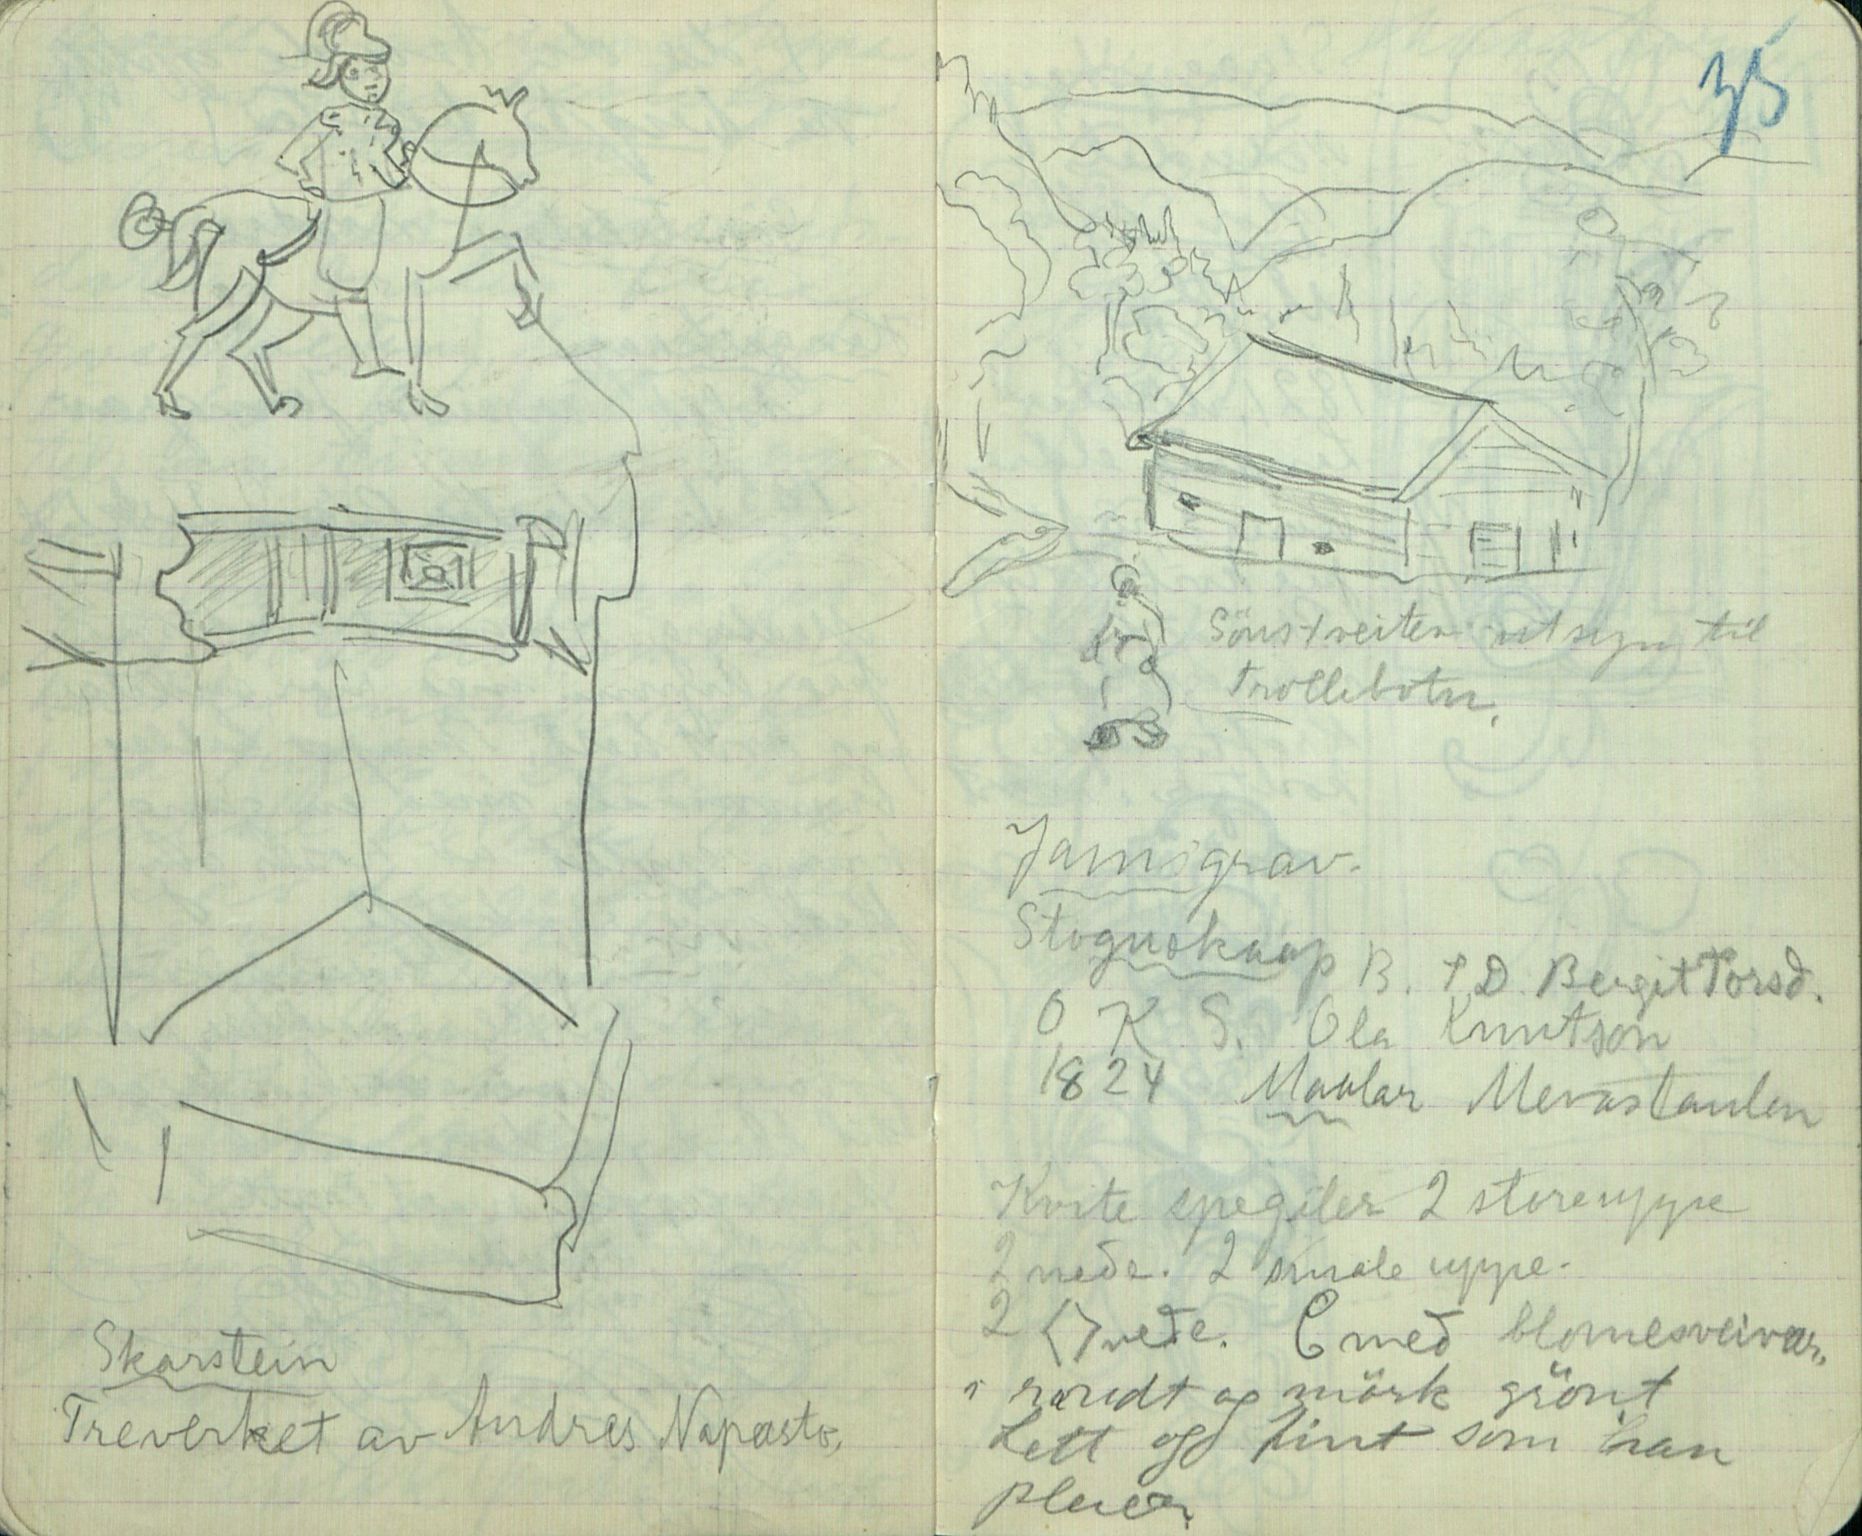 Skarstein
Treverket av Andres Napasto,
35
Sönstveiten utsyn til
Trollebotn.
Jamsgrav.
Stoguskaap B. T D. Bergit Torsd.
O K S. Ola Knutson
1824 Maalar Mevastaulen
Kvite spegiler 2 store uppe
2 nede. 2 smale uppe.
2 nede. C med blomesveivar,
i raudt og mörk grönt
Lett og fint som han
pleier